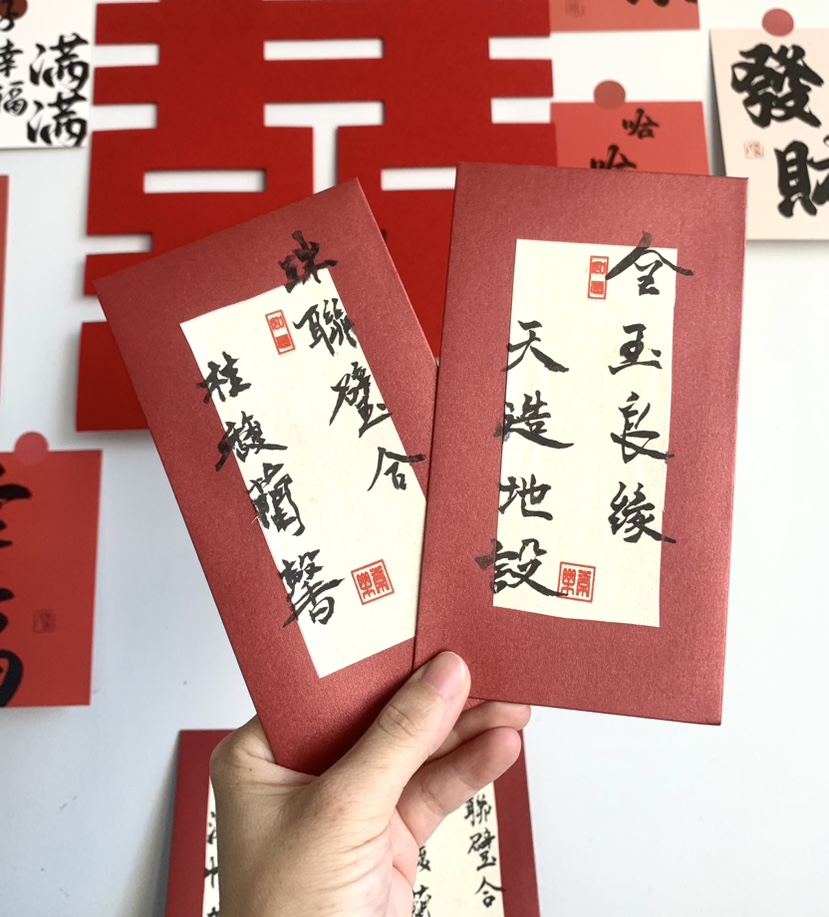 幸福
滿滿
囍
哈
發
財
珠聯璧合
桂馥蘭馨
金玉良緣
天造地設
聯璧合